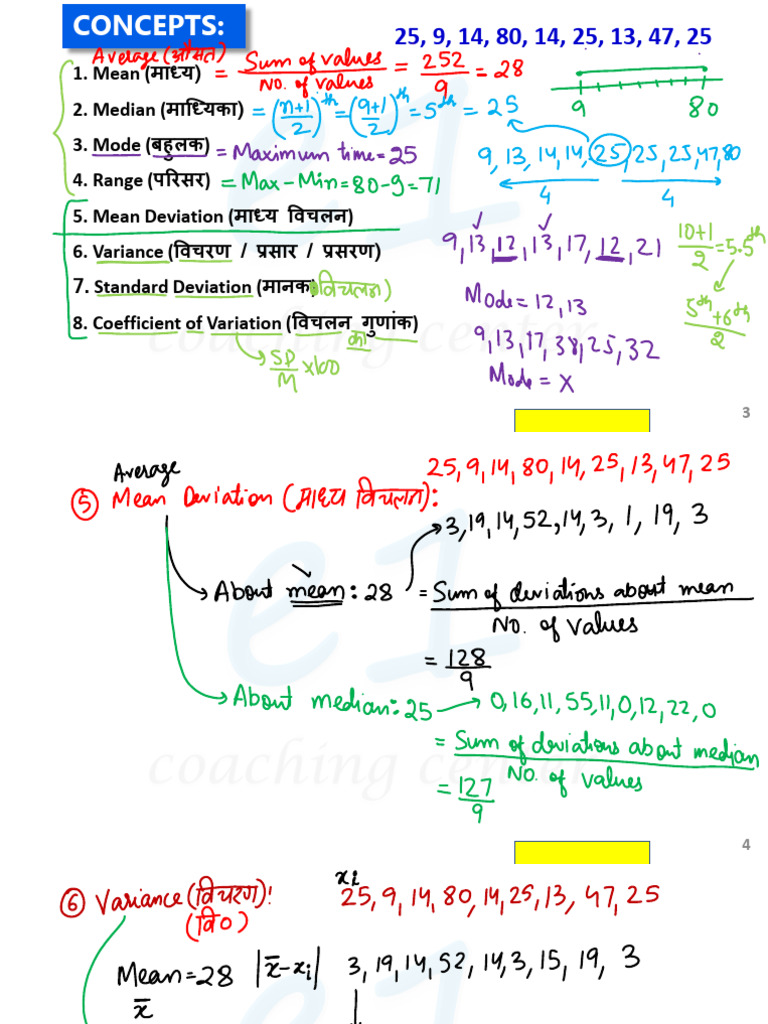 CONCEPTS:
25, 9, 14, 80, 14, 25, 13, 47, 25
Average (औसत)
1. Mean (माध्य) = Sum of values / No. of values = 252/9 = 28
9 80
2. Median (माध्यिका) = (n+1/2)th = (9+1/2)th = 5th = 25
3. Mode (बहुलक) = Maximum time = 25
9, 13, 14, 14, 25, 25, 25, 47, 80
4 4
4. Range (परिसर) = Max - Min = 80 - 9 = 71
5. Mean Deviation (माध्य विचलन)
9, 13, 12, 13, 17, 12, 21
10+1/2 = 5.5th
6. Variance (विचरण / प्रसार / प्रसरण)
7. Standard Deviation (मानक विचलन)
Mode = 12, 13
5th + 6th / 2
8. Coefficient of Variation (विचलन गुणांक)
का
9, 13, 17, 38, 25, 32
SD/M × 100
Mode = X
coaching center
3
Average
25, 9, 14, 80, 14, 25, 13, 47, 25
⑤ Mean Deviation (माध्य विचलन):
3, 19, 14, 52, 14, 3, 1, 19, 3
About mean: 28 = Sum of deviations about mean / No. of values
= 128/9
About median: 25 → 0, 16, 11, 55, 11, 0, 12, 22, 0
= Sum of deviations about median / No. of values
= 127/9
coaching center
4
xi
⑥ Variance (विचरण): 25, 9, 14, 80, 14, 25, 13, 47, 25
(वि०)
Mean = 28 |x̄ - xi| 3, 19, 14, 52, 14, 3, 15, 19, 3
x̄
e1